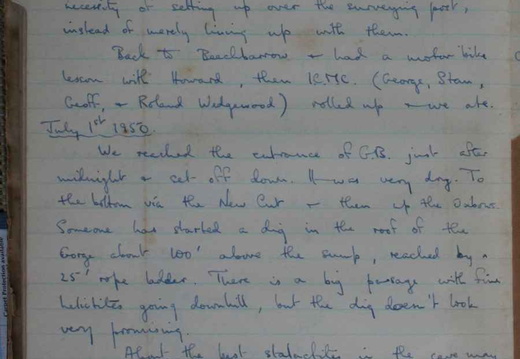 necessity of setting up over the surveying post,
instead of merely lining up with them.
Back to Beechbarrow & had a motor bike
lesson with Howard, then K.M.C. (George, Stan,
Geoff, & Roland Wedgewood) rolled up & we ate.
July 1st 1950.
We reached the entrance of G.B. just after
midnight & set off down. It was very dry. To
the bottom via the New Cut & then up the
Someone has started a dig in the roof of the
Gorge about 100' above the sump, reached by a
25' rope ladder. There is a big passage with fine
helictites going downhill, but the dig doesn't look
very promising.
About the best stalactites in the cave may